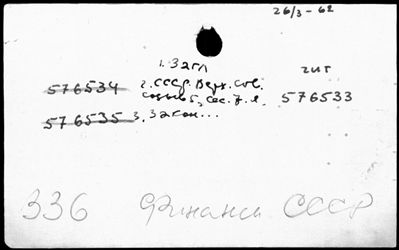 26/3-62
1. Загл
576534 2. СССР. Верх. Сов. чит
созыв 5, сес. 7-я. 576533
576535 3. Закон...
336 Финансы СССР